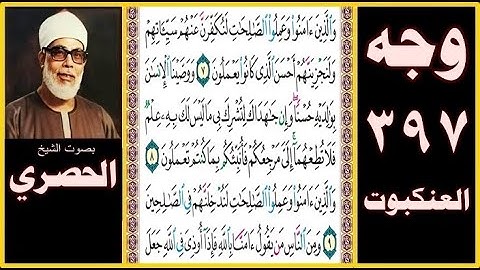 وجه
٣٩٧
العنكبوت
وَالَّذِينَ ءَامَنُوا وَعَمِلُوا الصَّالِحَاتِ لَنُكَفِّرَنَّ عَنْهُمْ سَيِّئَاتِهِمْ
وَلَنَجْزِيَنَّهُمْ أَحْسَنَ الَّذِي كَانُوا يَعْمَلُونَ ٧ وَوَصَّيْنَا الْإِنسَانَ
بِوَالِدَيْهِ حُسْنًا وَإِن جَاهَدَاكَ لِتُشْرِكَ بِي مَا لَيْسَ لَكَ بِهِ عِلْمٌ
فَلَا تُطِعْهُمَا إِلَيَّ مَرْجِعُكُمْ فَأُنَبِّئُكُم بِمَا كُنتُمْ تَعْمَلُونَ ٨
وَالَّذِينَ ءَامَنُوا وَعَمِلُوا الصَّالِحَاتِ لَنُدْخِلَنَّهُمْ فِي الصَّالِحِينَ
٩ وَمِنَ النَّاسِ مَن يَقُولُ ءَامَنَّا بِاللَّهِ فَإِذَا أُوذِيَ فِي اللَّهِ جَعَلَ
بصوت الشيخ
الحصري